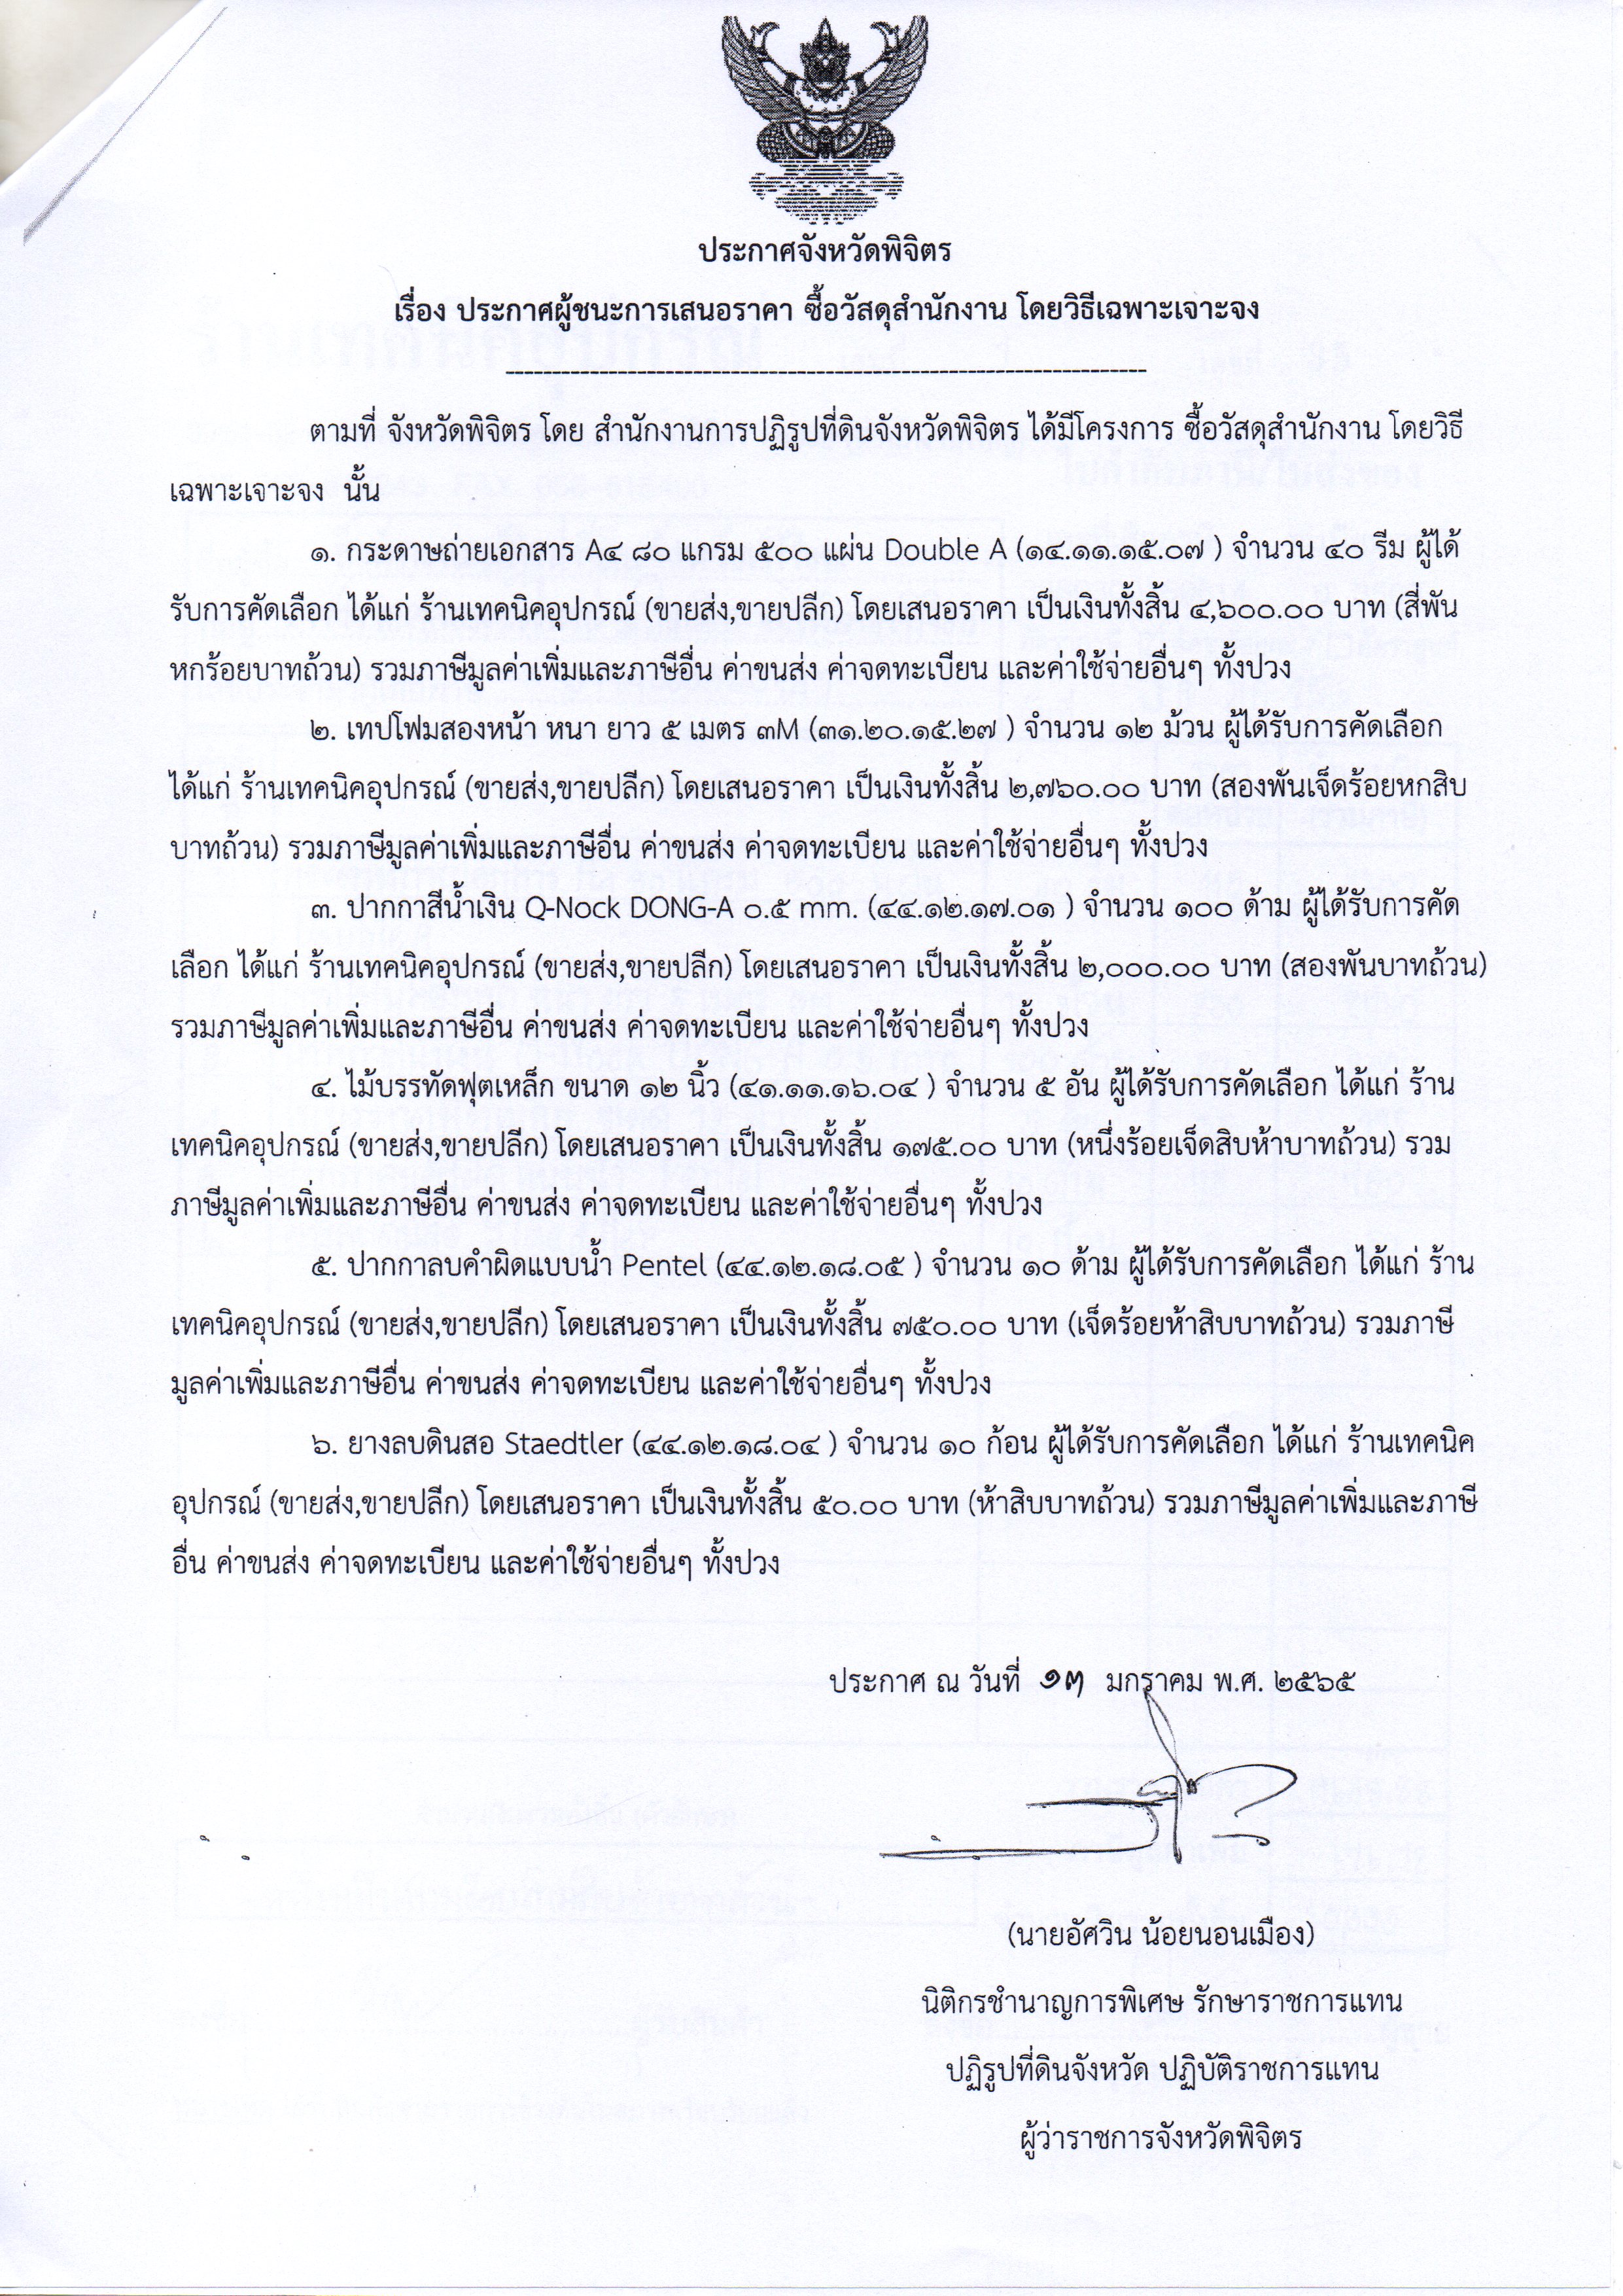 ประกาศจังหวัดพิจิตร
เรื่อง ประกาศผู้ชนะการเสนอราคา ซื้อวัสดุสำนักงาน โดยวิธีเฉพาะเจาะจง
ตามที่ จังหวัดพิจิตร โดย สำนักงานการปฏิรูปที่ดินจังหวัดพิจิตร ได้มีโครงการ ซื้อวัสดุสำนักงาน โดยวิธี
เฉพาะเจาะจง นั้น
๑. กระดาษถ่ายเอกสาร A๔ ๘๐ แกรม ๕๐๐ แผ่น Double A (๑๔.๑๑.๑๕.๐๗ ) จำนวน ๔๐ รีม ผู้ได้
รับการคัดเลือก ได้แก่ ร้านเทคนิคอุปกรณ์ (ขายส่ง,ขายปลีก) โดยเสนอราคา เป็นเงินทั้งสิ้น ๔,๖๐๐.๐๐ บาท (สี่พัน
หกร้อยบาทถ้วน) รวมภาษีมูลค่าเพิ่มและภาษีอื่น ค่าขนส่ง ค่าจดทะเบียน และค่าใช้จ่ายอื่นๆ ทั้งปวง
๒. เทปโฟมสองหน้า หนา ยาว ๕ เมตร ๓M (๓๑.๒๐.๑๕.๒๗ ) จำนวน ๑๒ ม้วน ผู้ได้รับการคัดเลือก
ได้แก่ ร้านเทคนิคอุปกรณ์ (ขายส่ง,ขายปลีก) โดยเสนอราคา เป็นเงินทั้งสิ้น ๒,๗๖๐.๐๐ บาท (สองพันเจ็ดร้อยหกสิบ
บาทถ้วน) รวมภาษีมูลค่าเพิ่มและภาษีอื่น ค่าขนส่ง ค่าจดทะเบียน และค่าใช้จ่ายอื่นๆ ทั้งปวง
๓. ปากกาสีน้ำเงิน Q-Nock DONG-A ๐.๕ mm. (๔๔.๑๒.๑๗.๐๑ ) จำนวน ๑๐๐ ด้าม ผู้ได้รับการคัด
เลือก ได้แก่ ร้านเทคนิคอุปกรณ์ (ขายส่ง,ขายปลีก) โดยเสนอราคา เป็นเงินทั้งสิ้น ๒,๐๐๐.๐๐ บาท (สองพันบาทถ้วน)
รวมภาษีมูลค่าเพิ่มและภาษีอื่น ค่าขนส่ง ค่าจดทะเบียน และค่าใช้จ่ายอื่นๆ ทั้งปวง
๔. ไม้บรรทัดฟุตเหล็ก ขนาด ๑๒ นิ้ว (๔๑.๑๑.๑๖.๐๔ ) จำนวน ๕ อัน ผู้ได้รับการคัดเลือก ได้แก่ ร้าน
เทคนิคอุปกรณ์ (ขายส่ง,ขายปลีก) โดยเสนอราคา เป็นเงินทั้งสิ้น ๑๗๕.๐๐ บาท (หนึ่งร้อยเจ็ดสิบห้าบาทถ้วน) รวม
ภาษีมูลค่าเพิ่มและภาษีอื่น ค่าขนส่ง ค่าจดทะเบียน และค่าใช้จ่ายอื่นๆ ทั้งปวง
๕. ปากกาลบคำผิดแบบน้ำ Pentel (๔๔.๑๒.๑๘.๐๕ ) จำนวน ๑๐ ด้าม ผู้ได้รับการคัดเลือก ได้แก่ ร้าน
เทคนิคอุปกรณ์ (ขายส่ง,ขายปลีก) โดยเสนอราคา เป็นเงินทั้งสิ้น ๗๕๐.๐๐ บาท (เจ็ดร้อยห้าสิบบาทถ้วน) รวมภาษี
มูลค่าเพิ่มและภาษีอื่น ค่าขนส่ง ค่าจดทะเบียน และค่าใช้จ่ายอื่นๆ ทั้งปวง
๖. ยางลบดินสอ Staedtler (๔๔.๑๒.๑๘.๐๔ ) จำนวน ๑๐ ก้อน ผู้ได้รับการคัดเลือก ได้แก่ ร้านเทคนิค
อุปกรณ์ (ขายส่ง,ขายปลีก) โดยเสนอราคา เป็นเงินทั้งสิ้น ๕๐.๐๐ บาท (ห้าสิบบาทถ้วน) รวมภาษีมูลค่าเพิ่มและภาษี
อื่น ค่าขนส่ง ค่าจดทะเบียน และค่าใช้จ่ายอื่นๆ ทั้งปวง
ประกาศ ณ วันที่ ๑๓ มกราคม พ.ศ. ๒๕๖๕
(นายอัศวิน น้อยนอนเมือง)
นิติกรชำนาญการพิเศษ รักษาราชการแทน
ปฏิรูปที่ดินจังหวัด ปฏิบัติราชการแทน
ผู้ว่าราชการจังหวัดพิจิตร